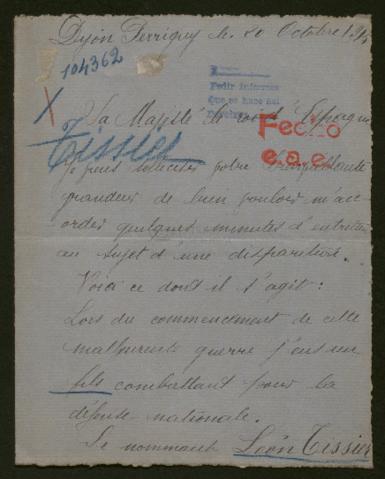 Dijon Perrigny le 20 Octobre 191
104362
Pedir informes
Que se hace así
X
Sa Majesté le roi d'Espagne
Fecho
e.a.e.
Tissier
Je viens solliciter votre
grandeur de bien vouloir m'ac-
corder quelques minutes d'entretien
au sujet d'une disparition.
Voici ce dont il s'agit:
Lors du commencement de cette
malheureuse guerre j'eus un
fils combattant pour la
défense nationale.
Se nommant Léon Tissier